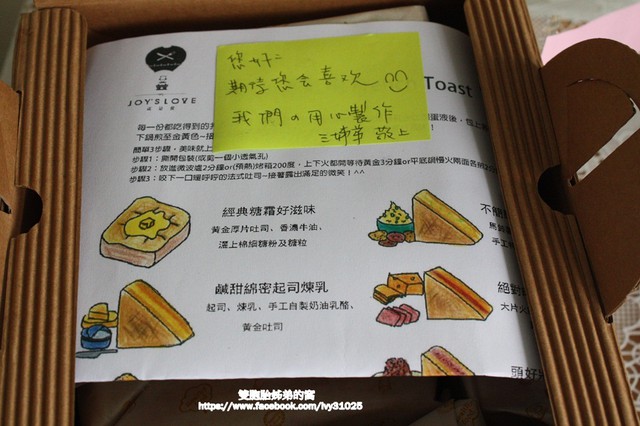 JOY'S LOVE
您好：
期待您会喜欢
我們の用心製作
三姊弟 敬上
Toast
每一份都吃得到的
蛋液後，
下鍋煎至金黃色~接
簡單3步驟，美味就上
步驟1：撕開包裝(或剪一個小透氣孔)
步驟2：放進微波爐2分鐘or(預熱)烤箱200度，上下火都閉等待黃金3分鐘or平底鍋慢火兩面各煎
步驟3：咬下一口暖呼呼的法式吐司~接著露出滿足的微笑！^^
經典糖霜好滋味
黃金厚片吐司、香濃牛油、
灑上棉細糖粉及糖粒
鹹甜綿密起司煉乳
起司、煉乳、手工自製奶油乳酪、
黃金吐司
手工
絕對
大片
頭好
雙胞胎姊弟的窩
https://www.facebook.com/ivy31025